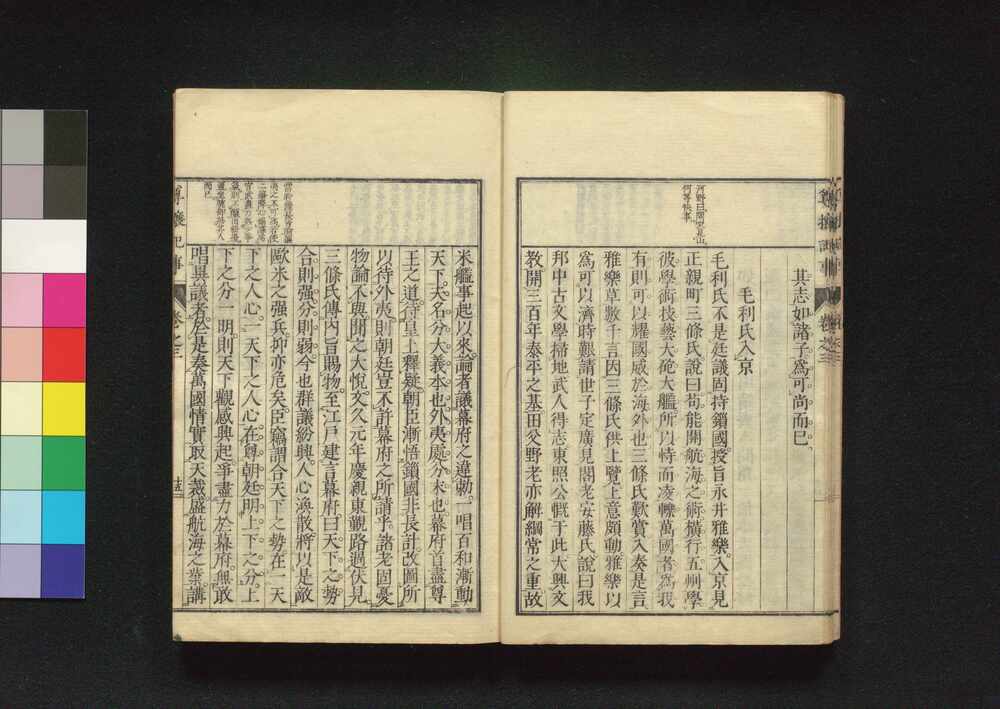 其志如諸子爲可尚而已。
毛利氏入京
毛利氏不是廷議固持鎖國。授旨永井雅樂。入京見
正親町三條氏說曰苟能開航海之術橫行五州學
彼學術技藝大砲大艦所以恃而凌轢萬國者爲我
有則可以耀國威於海外也三條氏歎賞入奏是言
雅樂草數千言因三條氏供上覽上意頗動雅樂以
爲可以濟時艱請世子定廣見閣老安藤氏說曰我
邦中古文學掃地武人得志東照公慨于此大興文
教開三百年泰平之基田叟野老亦解綱常之重故
河野曰
何等快事。
米艦事起以來。論者議幕府之違勅。一唱百和漸動
天下。夫名分大義本也外夷處分末也幕府首盡尊
王之道。待皇上釋疑。朝臣漸悟鎖國非長計改圖所
以待外夷。則朝廷豈不許幕府之所請乎諸老固憂
物論不與聞之大悅文久元年慶親東觀路過伏見
三條氏傳內旨賜物。至江戶建言幕府曰。天下之勢
合則强。分則弱。今也群議紛興人心渙散將以是敵
歐米之强兵抑亦危矣。臣竊謂合天下之勢在一天
下之人心。一天下之人心。在尊朝廷明上下之分。上
下之分一明。則天下觀感興起爭盡力於幕府。無敢
唱異議者。於是奏萬國情實取天裁盛航海之業。講
尊攘紀事
卷之三